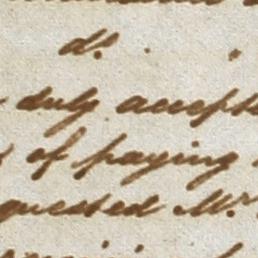 do.
duly accept
of paying
quested Mr